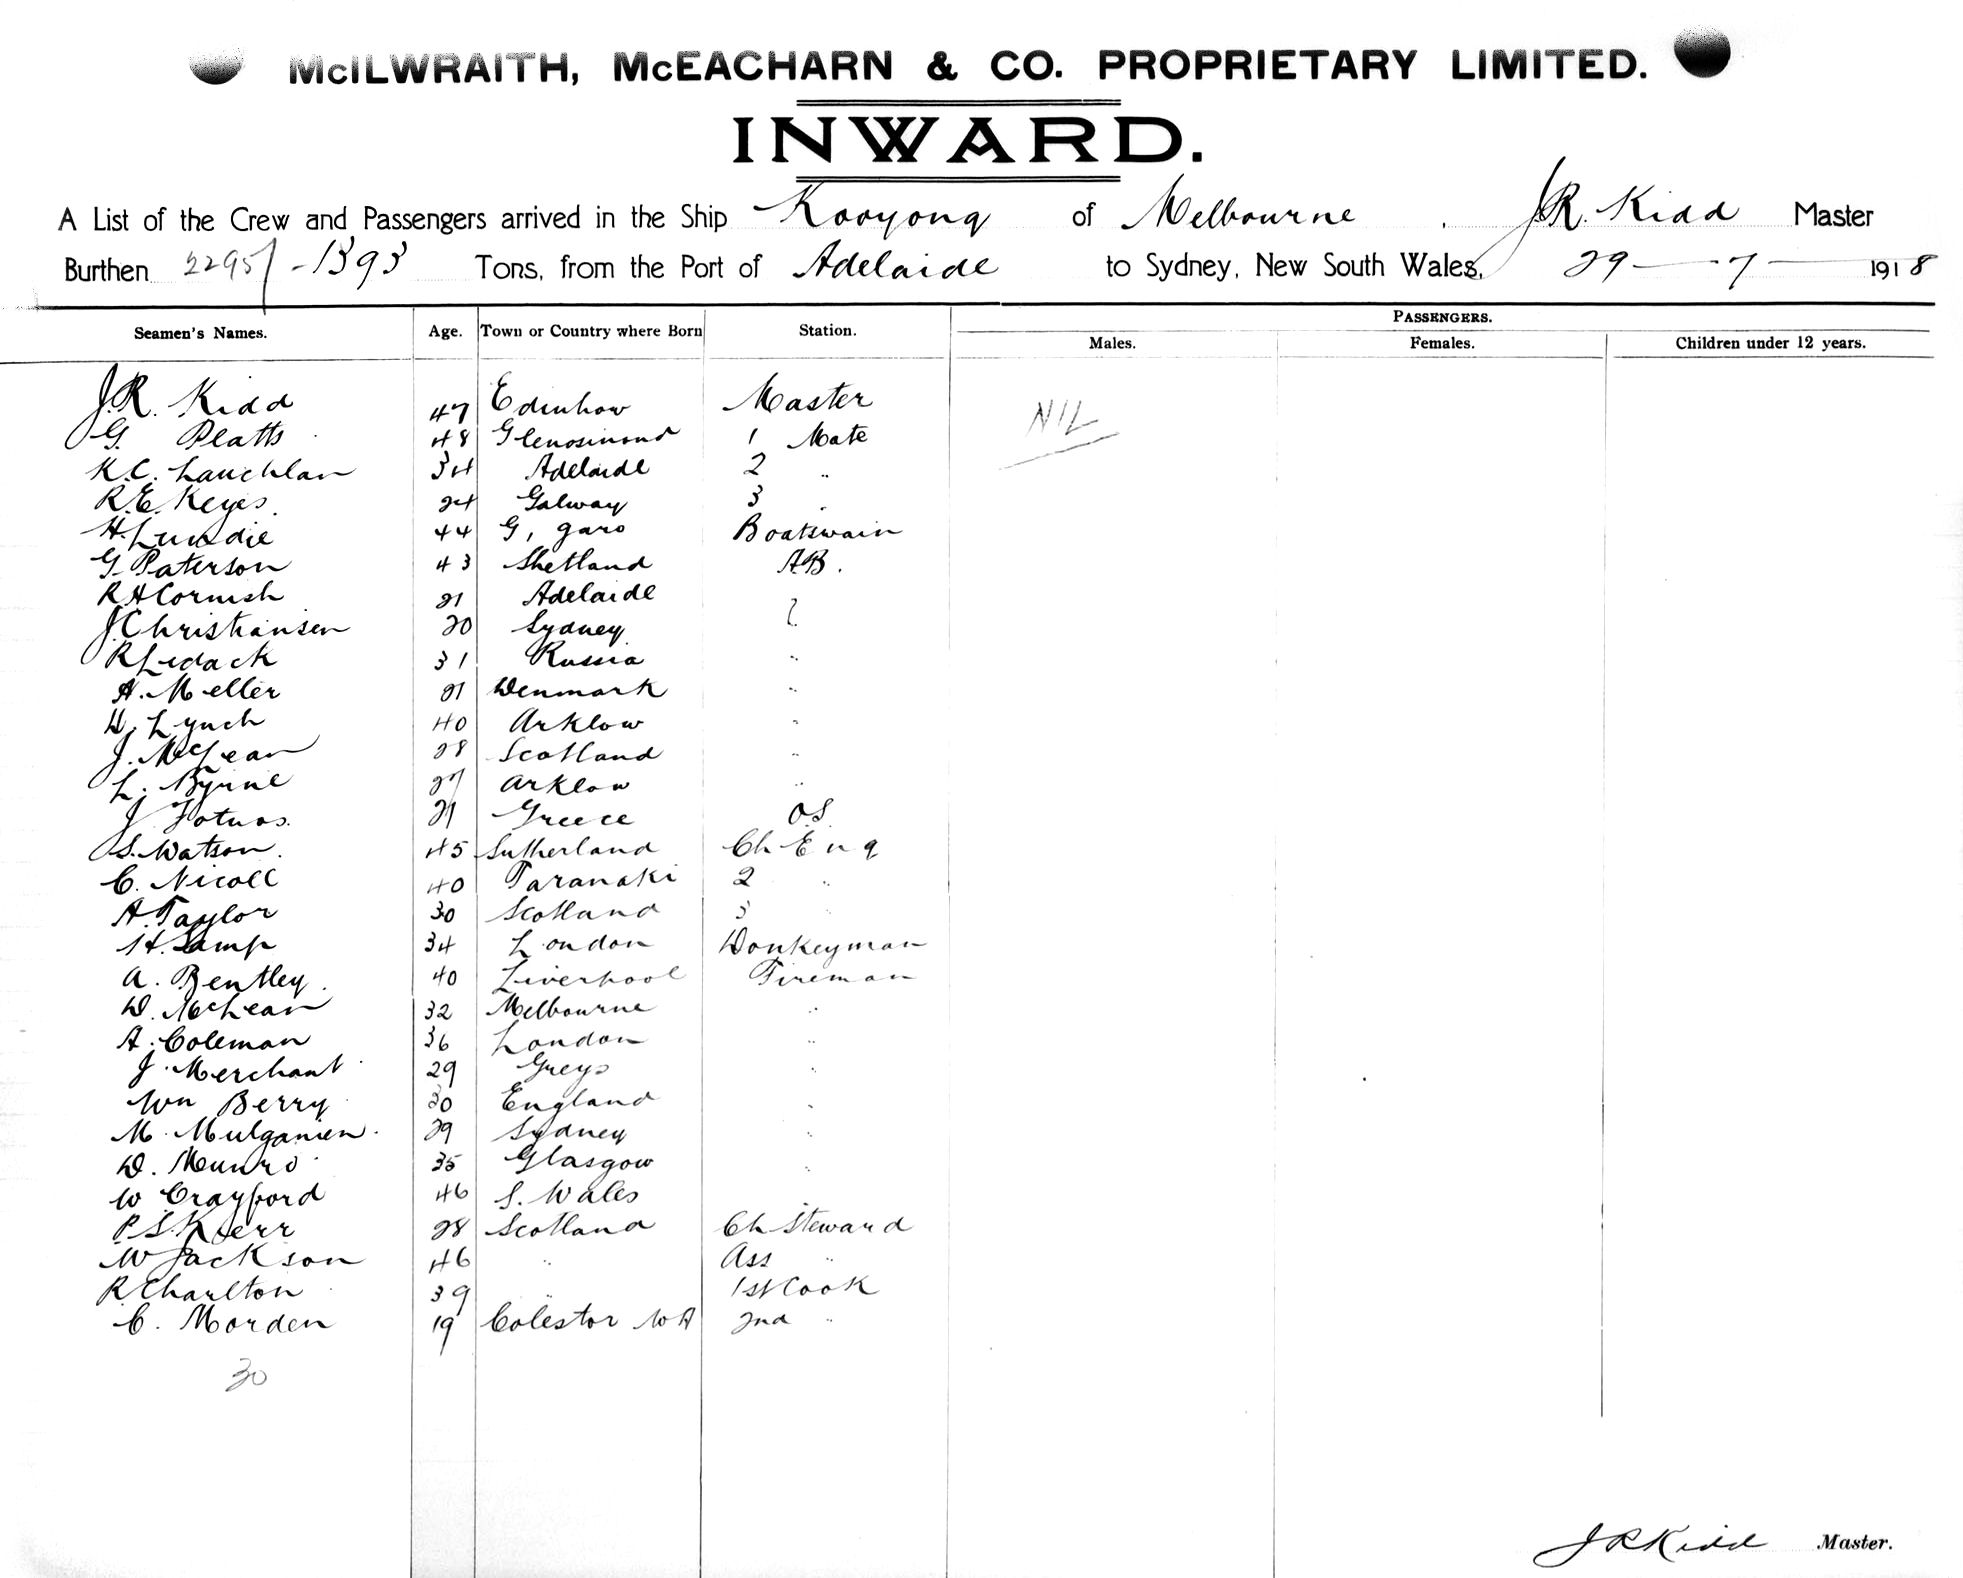 McILWRAITH, McEACHARN & CO. PROPRIETARY LIMITED.
INWARD.
A List of the Crew and Passengers arrived in the Ship Kooyong of Melbourne . J.R. Kidd Master
Burthen 2295/-1393 Tons, from the Port of Adelaide to Sydney, New South Wales, 29 — 7 — 1918
Seamen's Names. Age. Town or Country where Born Station. PASSENGERS.
Males. Females. Children under 12 years.
J.R. Kidd 47 Master NIL
G. Platts 48 1 Mate
K.C. Lauchlan 34 Adelaide 2 "
R.E. Keyes. 24 Galway 3 "
H. Lundie 44 G, Boatswain
G. Paterson 43 Shetland AB.
R H Cornish 21 Adelaide
J. Christiansen 20 Sydney
R Lidack 31 Russia "
A. Meller 21 Denmark "
D. Lynch 40 Arklow "
J. McLean 28 Scotland "
L. Byrne 27 Arklow "
J 21 Greece O.S.
S. Watson. 45 Sutherland Ch Eng
C. Nicoll 40 Taranaki 2 "
A. Taylor 30 Scotland 3 "
H. Lamp 34 London Donkeyman
A. Bentley. 40 Liverpool Fireman
D. McLean 32 Melbourne "
A. Coleman 36 London "
J. Merchant 29 Greys "
Wm Berry 30 England "
M. 29 Sydney "
D. Munro 35 Glasgow "
W Crayford 46 S. Wales
P.S. Kierr 28 Scotland Ch Steward
W Jackson 46 " Ass "
R Charlton 39 " 1st Cook
C. Morden 19 Colestor WA 2nd "
30
J R Kidd Master.